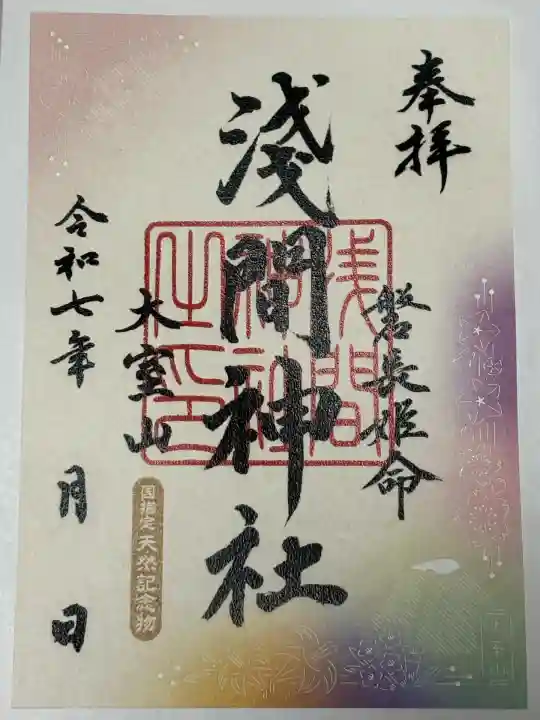 奉拝
磐長姫命
淺間神社
浅間神社之印
大室山
国指定 天然記念物
令和七年 月 日